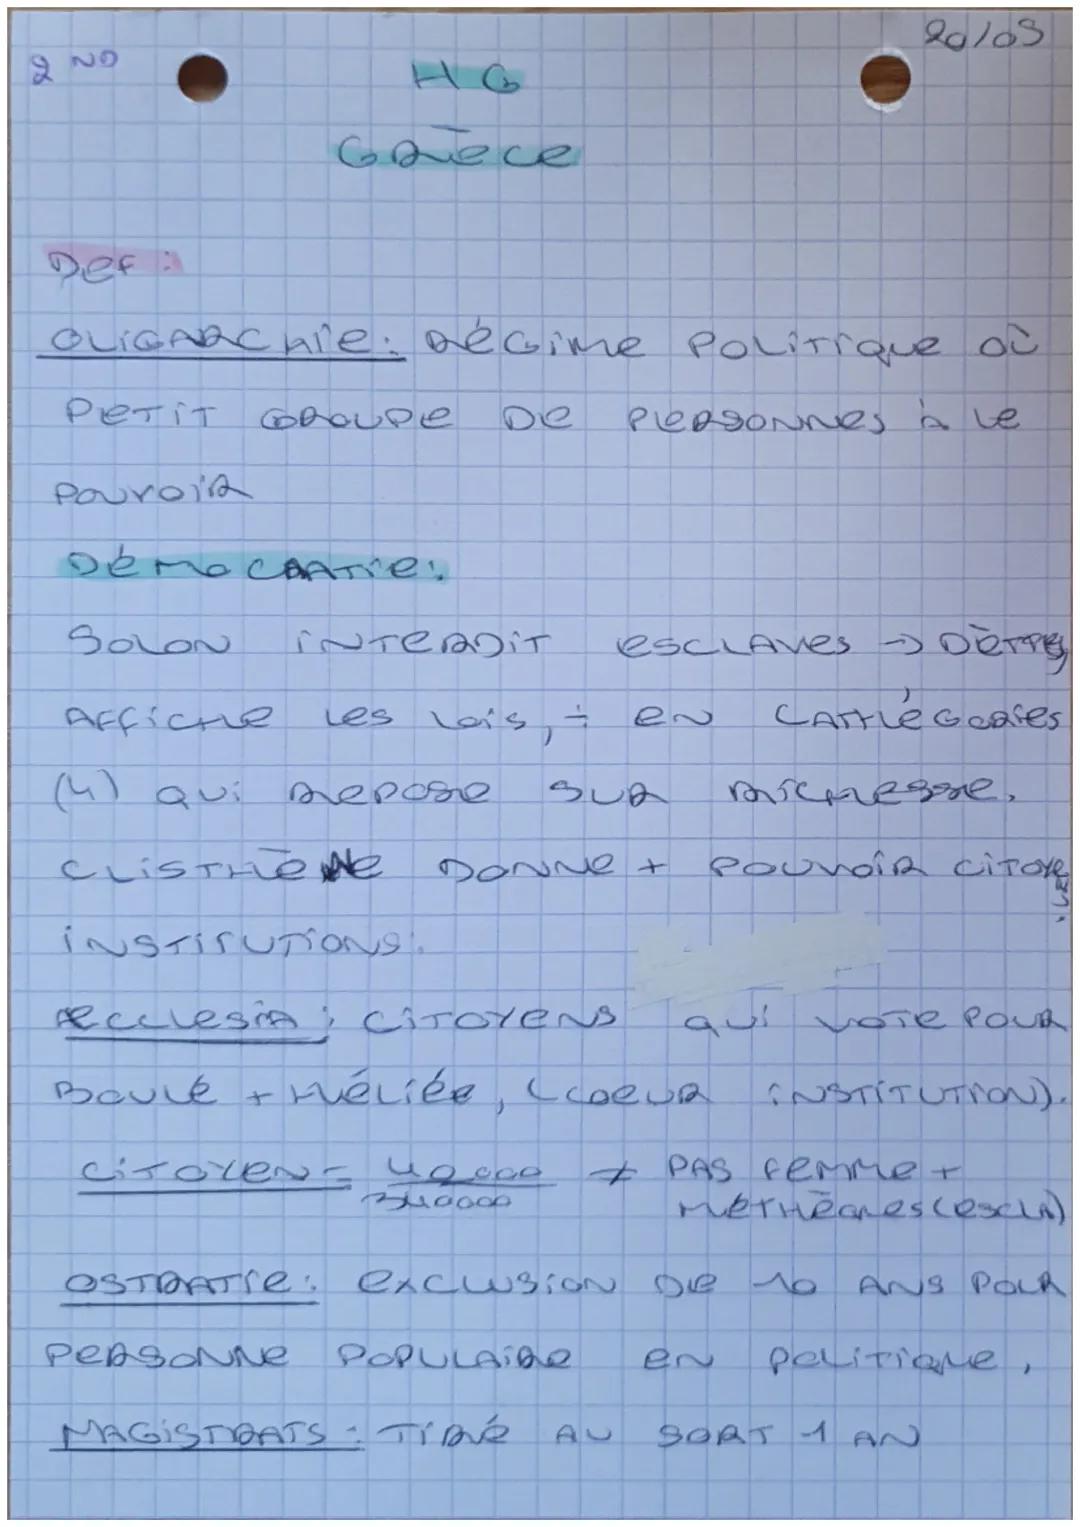 20/09
2 ND
HG
GRÈCE
DEF :
OLIGARCHIE : RÉGIME POLITIQUE OÙ
PETIT GROUPE DE PERSONNES à LE
POUVOIR
DÉMOCRATIE :
SOLON INTERDIT ESCLAVES →
AFFICHE LES LOIS, ÷ EN CATHÉGORIES
(4) QUI REPOSE SUR RICHESSE.
CLISTHÈNE DONNE + POUVOIR CITOYENS.
INSTITUTIONS :
ECCLESIA : CITOYENS QUI VOTE POUR
BOULÉ + HÉLIÉE, (COEUR INSTITUTION).
CITOYEN = 42000 ≠ PAS FEMME +
340000 MÉTHÈQUES (ESCLA)
OSTRATIE : EXCLUSION DE 10 ANS POUR
PERSONNE POPULAIRE EN POLITIQUE,
MAGISTRATS : TIRÉ AU SORT 1 AN